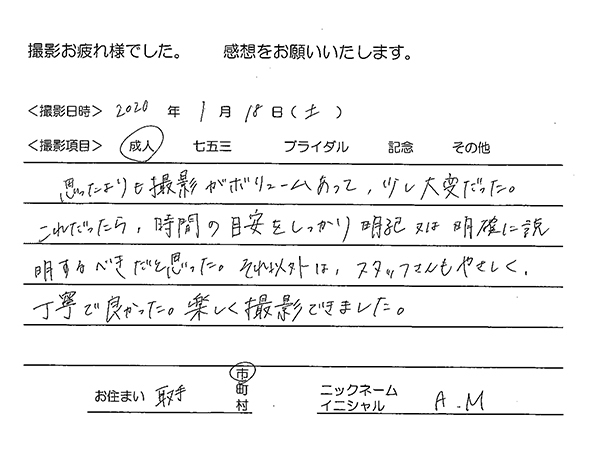 撮影お疲れ様でした。 感想をお願いいたします。
＜撮影日時＞ 2020 年 1 月 18 日（土）
＜撮影項目＞ 成人 七五三 ブライダル 記念 その他
思ったよりも撮影がボリュームあって、少し大変だった。
これだったら、時間の目安をしっかり明記又は明確に説
明するべきだと思った。それ以外は、スタッフさんもやさしく、
丁寧で良かった。楽しく撮影できました。
お住まい 取手 市町村 ニックネーム イニシャル A.M